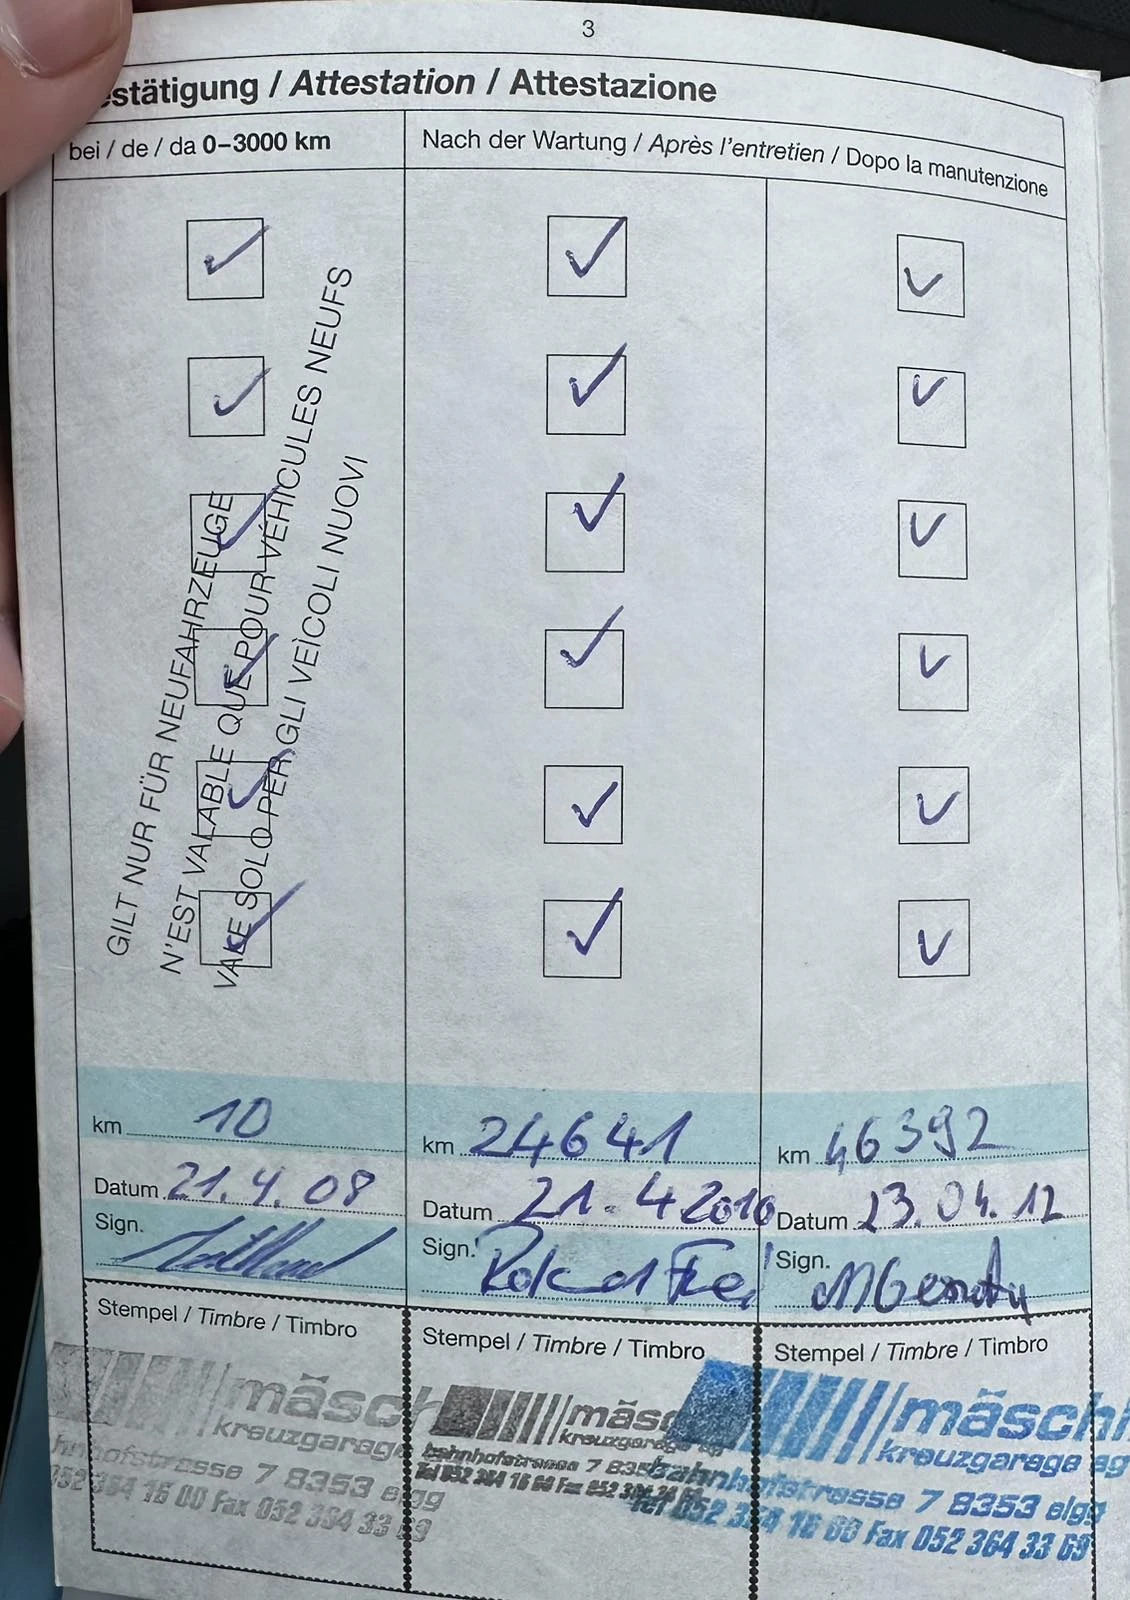 3
estätigung / Attestation / Attestazione
bei / de / da 0–3000 km
Nach der Wartung / Après l'entretien / Dopo la manutenzione
GILT NUR FÜR NEUFAHRZEUGE
N'EST VALABLE QUE POUR VÉHICULES NEUFS
VALE SOLO PER GLI VEÌCOLI NUOVI
km 10
Datum 21.4.08
Sign.
Stempel / Timbre / Timbro
mäsch
kreuzgarage
hnhofstrasse 7 8353 elgg
052 364 16 00 Fax 052 364 33 69
km 24641
Datum 21.4 2010
Sign.
Stempel / Timbre / Timbro
mäsc
kreuzgarage ag
bahnhofstrasse 7 835
Tel 052 364 16 00 Fax 052 364 33 69
km 46392
Datum 23.04.12
Sign.
Stempel / Timbre / Timbro
mäschi
kreuzgarage ag
bahnhofstrasse 7 8353 elgg
Tel 052 364 16 00 Fax 052 364 33 69